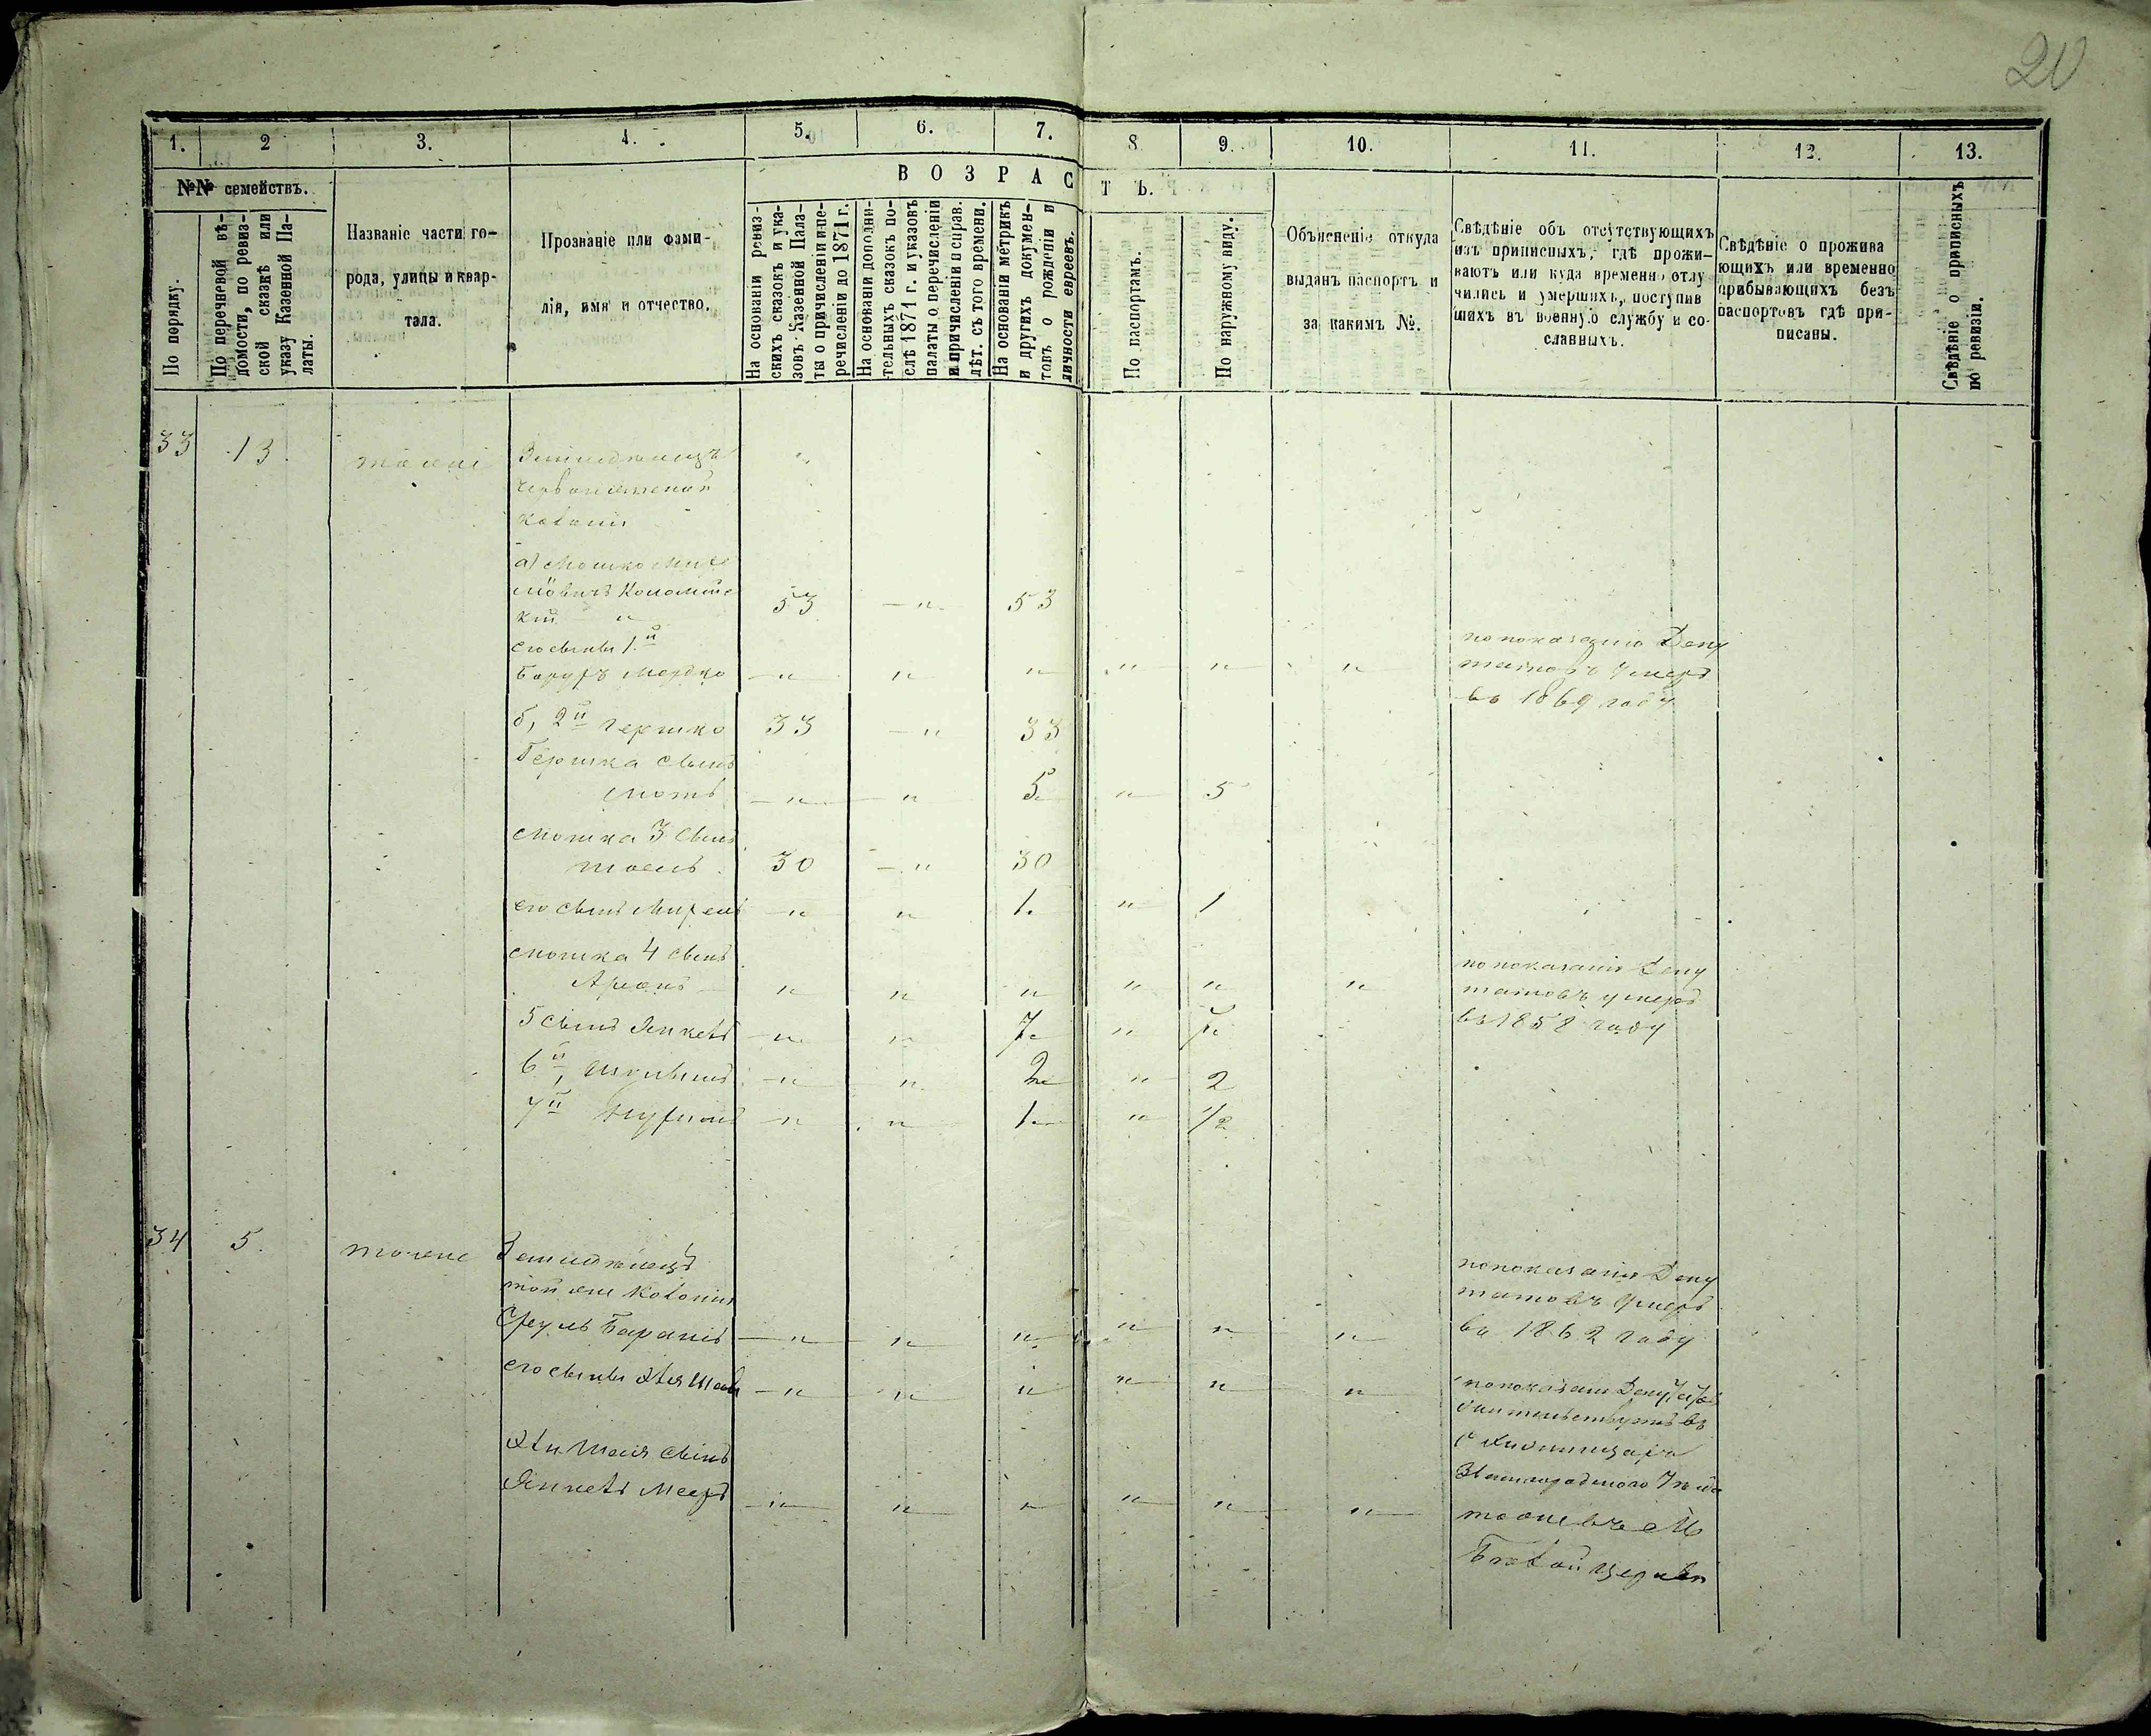 20
1. 2 3. 4. 5. 6. 7. 8. 9. 10. 11. 12. 13.
№№ семействъ.
В О З Р А С Т Ъ.
По порядку.
По перечневой вѣ-
домости, по ревиз-
ской сказкѣ или
указу Казенной Па-
латы.
Названіе части го-
рода, улицы и квар-
тала.
Прозваніе или фами-
лія, имя и отчество.
На основаніи ревиз-
скихъ сказокъ и ука-
зовъ Казенной Пала-
ты о причисленіи и пе-
речисленіи до 1871 г.
На основаніи дополни-
тельныхъ сказокъ по-
слѣ 1871 г. и указовъ
палаты о перечисленіи
и причисленіи и справ.
лѣт. съ того времени.
На основаніи метрикъ
и другихъ докумен-
товъ о рожденіи и
личности евреевъ.
По паспортамъ.
По наружному виду.
Объясненіе откуда
выданъ паспортъ и
за какимъ №.
Свѣдѣніе объ отсутствующихъ
изъ приписныхъ, гдѣ прожи-
ваютъ или куда временно отлу
чились и умершихъ, поступив
шихъ въ военную службу и со-
сланныхъ.
Свѣдѣніе о прожива
ющихъ или временно
прибывающихъ безъ
паспортовъ гдѣ при-
писаны.
Свѣдѣніе о приписныхъ
по ревизіи.
33 13. тоже Земледѣлецъ "
колоніи
а) Мошко
53 — " 53
кій "
его сыны 1й
Барухъ Мордко — " " " " " "
по показанію Депу
татовъ умеръ
въ 1869 году
б, 2й Гершко 33 — " 33
Гершка сынъ
Мотъ — " — " 5 " 5
Мошка 3 сынъ
30 — " 30
его сынъ — " " 1. " 1
Мошка 4 сынъ
Аронъ — " " " " " "
по показанію Депу
татовъ умеръ
въ 1858 году
5 сынъ Янкель — " " 7 " 7
6й, — " " 2 " 2
7й — " " 1 " 1/2
34 5. тоже Земледѣлецъ
той же колоніи
Сруль — " " " " " "
по показанію Депу
татовъ умеръ
въ 1862 году
его сынъ — " " " " " "
по показанію
жительствуютъ въ
Звенигородскаго Уѣзда
сынъ
Янкель Мееръ — " " " " " "
тоже въ М
Бѣлой Церкви